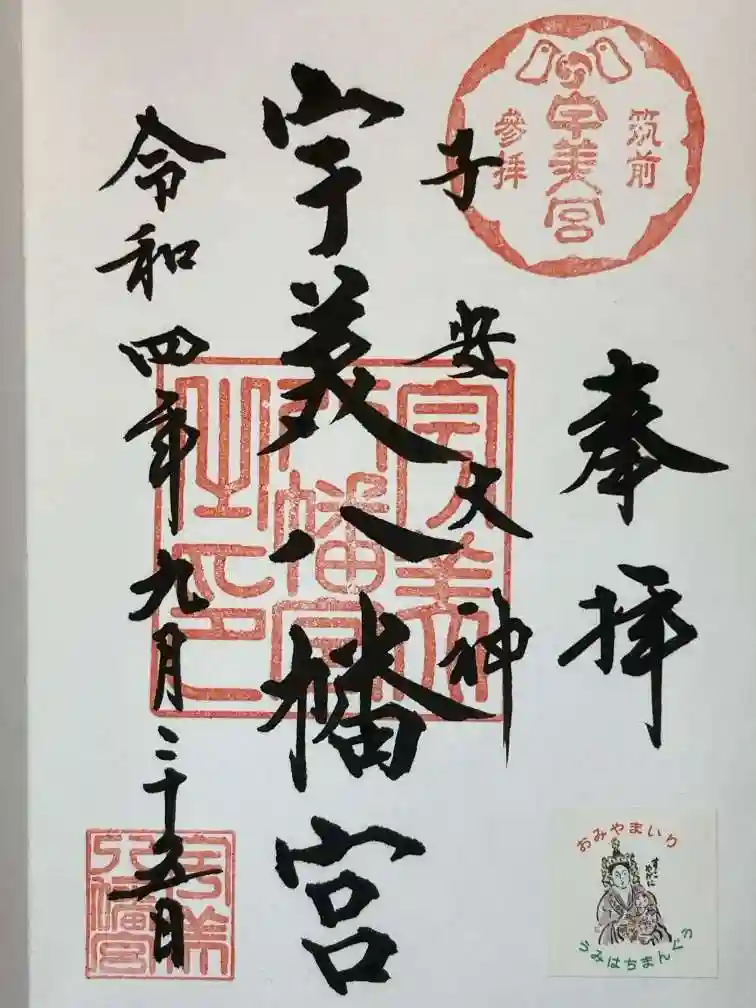 奉拝
筑前
宇美宮
參拝
子安大神
宇美八幡宮
宇美八幡宮之印
令和四年九月二十五日
宇美八幡宮
おみやまいり
うみはちまんぐう